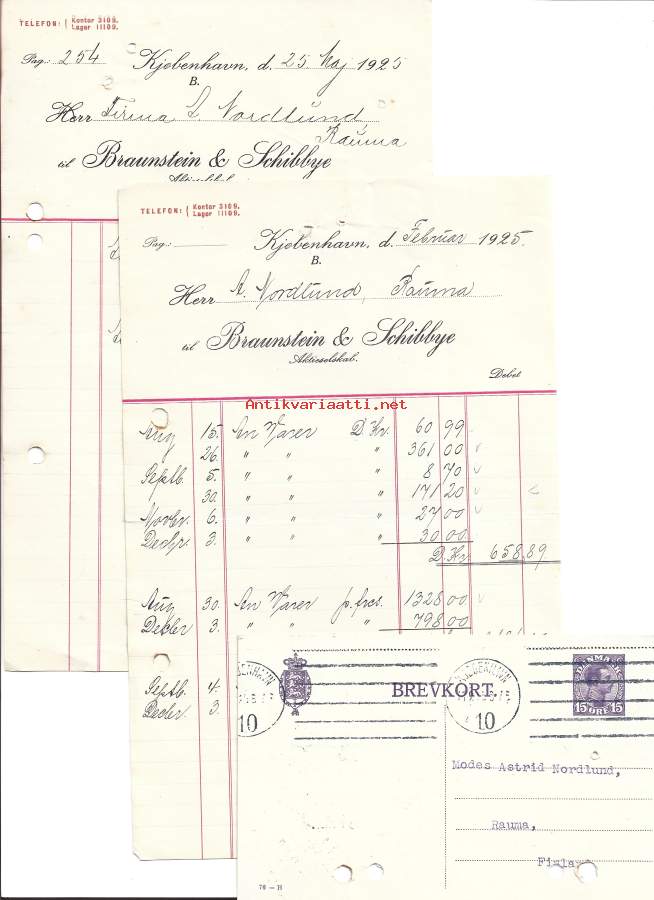 TELEFON: { Kontor 3109.
Lager 11109.
Pag.: 254
Kjøbenhavn, d. 25 Maj 1925
B.
Herr Firma L. Nordlund,
Rauma
til Braunstein & Schibbye
TELEFON: { Kontor 3109.
Lager 11109.
Pag.:
Kjøbenhavn, d. Februar 1925.
B.
Herr A. Nordlund, Rauma
til Braunstein & Schibbye
Aktieselskab.
Debet
Antikvariaatti.net
Aug 15. An Varer D.Kr. 60 99
26. " " " 361 00
Septb. 5. " " " 8 70
30. " " " 171 20
Novbr. 6. " " " 27 00
Decbr. 3. " " " 30 00
D.Kr. 658,89
Aug 30. An Varer p. frcs. 1328 00
Decbr 3. " " " 798 00
Septb. 4.
Decbr 3.
KJØBENHAVN
10
BREVKORT.
KJØBENHAVN
10
DANMARK
15 ØRE 15
Modes Astrid Nordlund,
Rauma,
Finland
76 - H